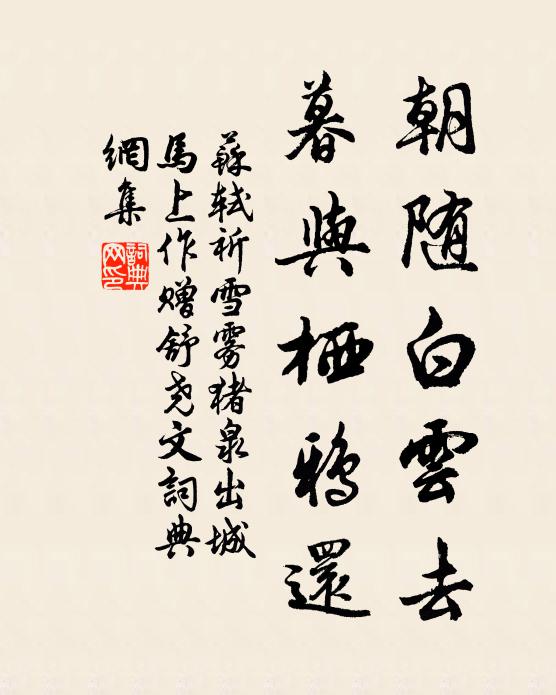 朝随白雲去
暮與栖鴉還
蘇軾祈雪雾猪泉出城
馬上作赠舒尧文詞典
網集
詞典
网印